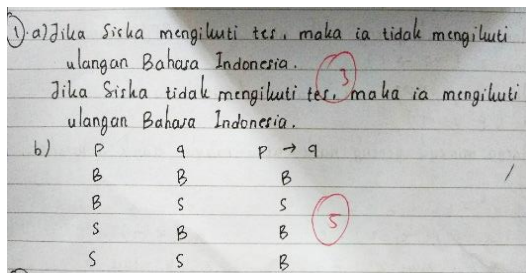 1. a) Jika Siska mengikuti tes, maka ia tidak mengikuti
ulangan Bahasa Indonesia.
3
Jika Siska tidak mengikuti tes, maka ia mengikuti
ulangan Bahasa Indonesia.
b) p q p → q
B B B
B S S
5
S B B
S S B